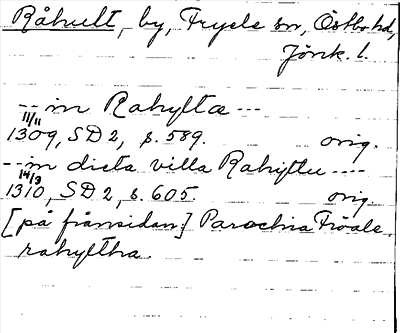 Råhult, by, Fryele sn, Östbo hd,
Jönk. l.
-- in Rahylta ---
11/11
1309, SD 2, s. 589. orig.
-- in dicta villa Rahyltu ----
14/3
1310, SD 2, s. 605. orig.
[på frånsidan:] Parochia Fröale.
rahyltha.